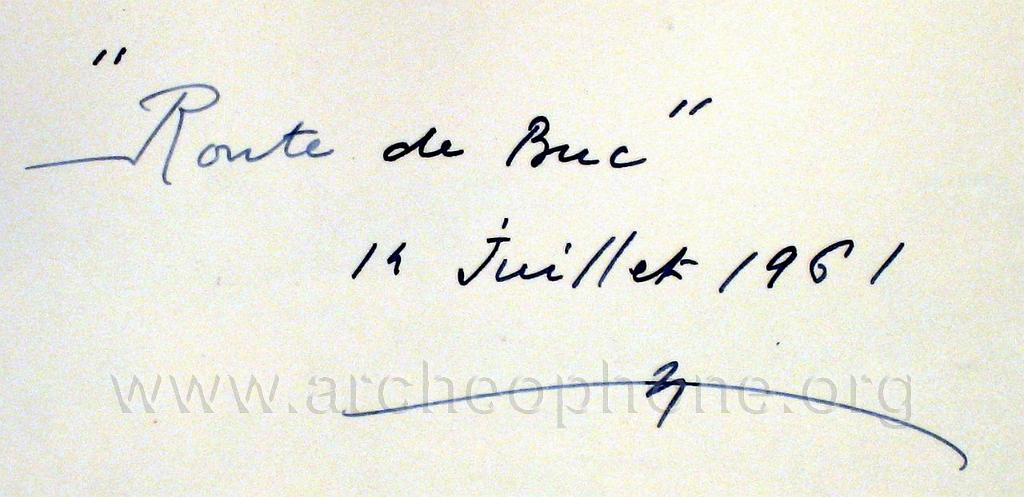 "Route de Buc"
14 Juillet 1961
www.archeophone.org